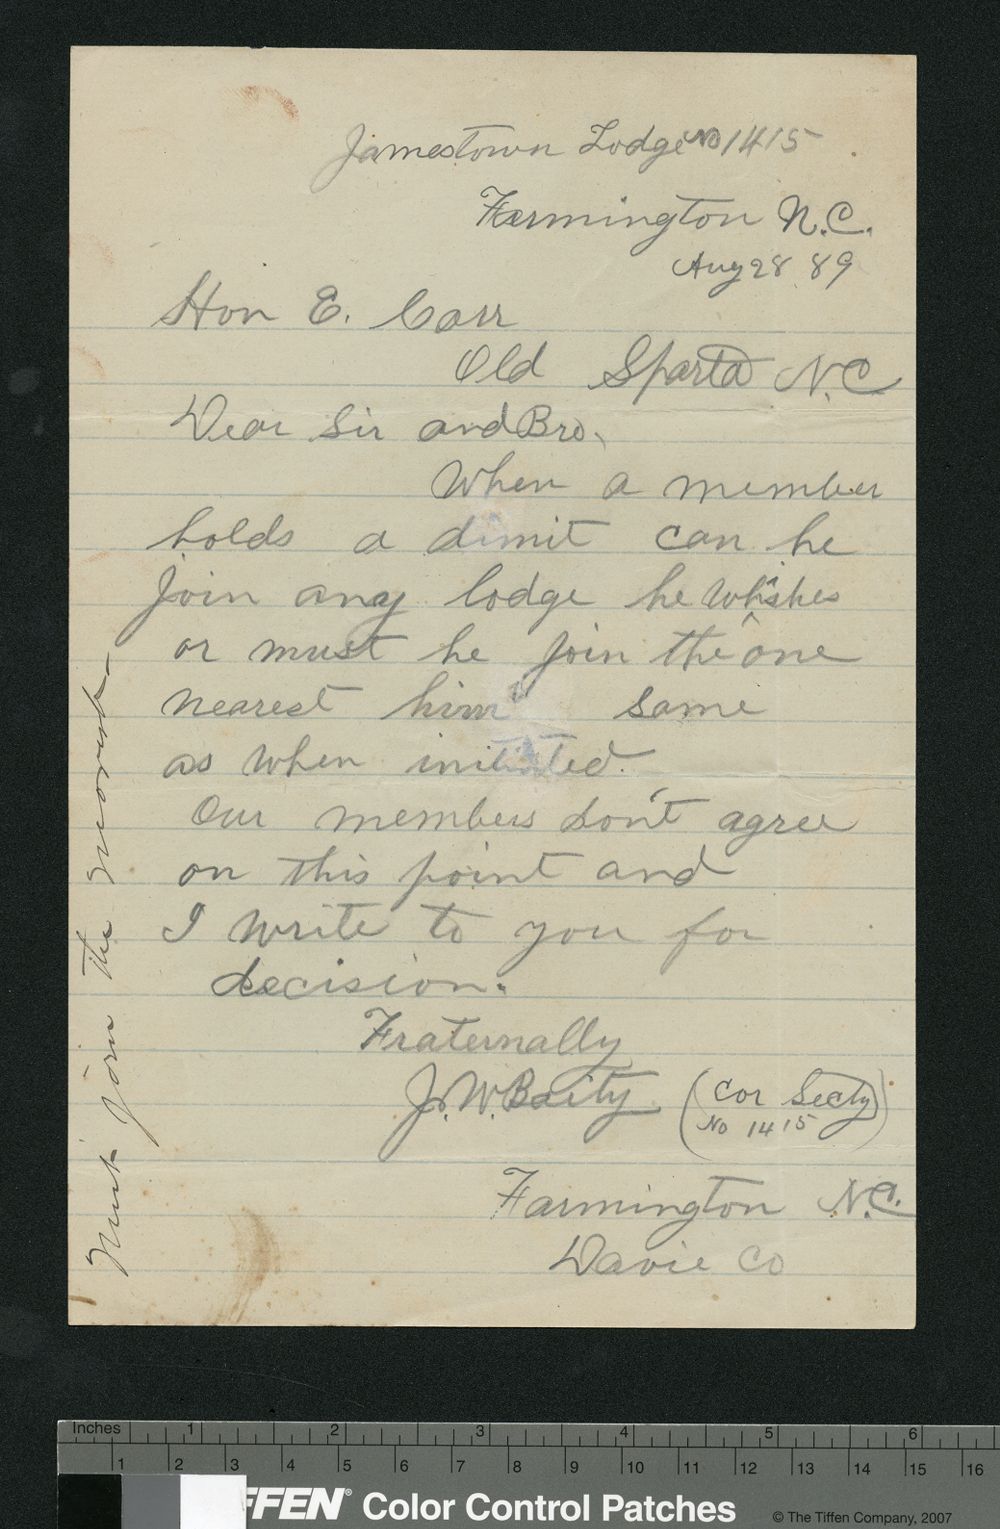 Jamestown Lodge No 1415
Farmington N.C.
Aug 28 89
Hon E. Carr
Old Sparta N.C.
Dear Sir and Bro.
When a member
holds a dimit can he
join any lodge he wishes
or must he join the one
nearest him same
as when initiated.
Our members don't agree
on this point and
I write to you for
decision.
Fraternally
J. W. Baity (Cor Secty
No 1415)
Farmington N.C.
Davie Co
Must join the nearest
Inches 1 2 3 4 5 6
1 2 3 4 5 6 7 8 9 10 11 12 13 14 15 16
FFEN® Color Control Patches © The Tiffen Company, 2007